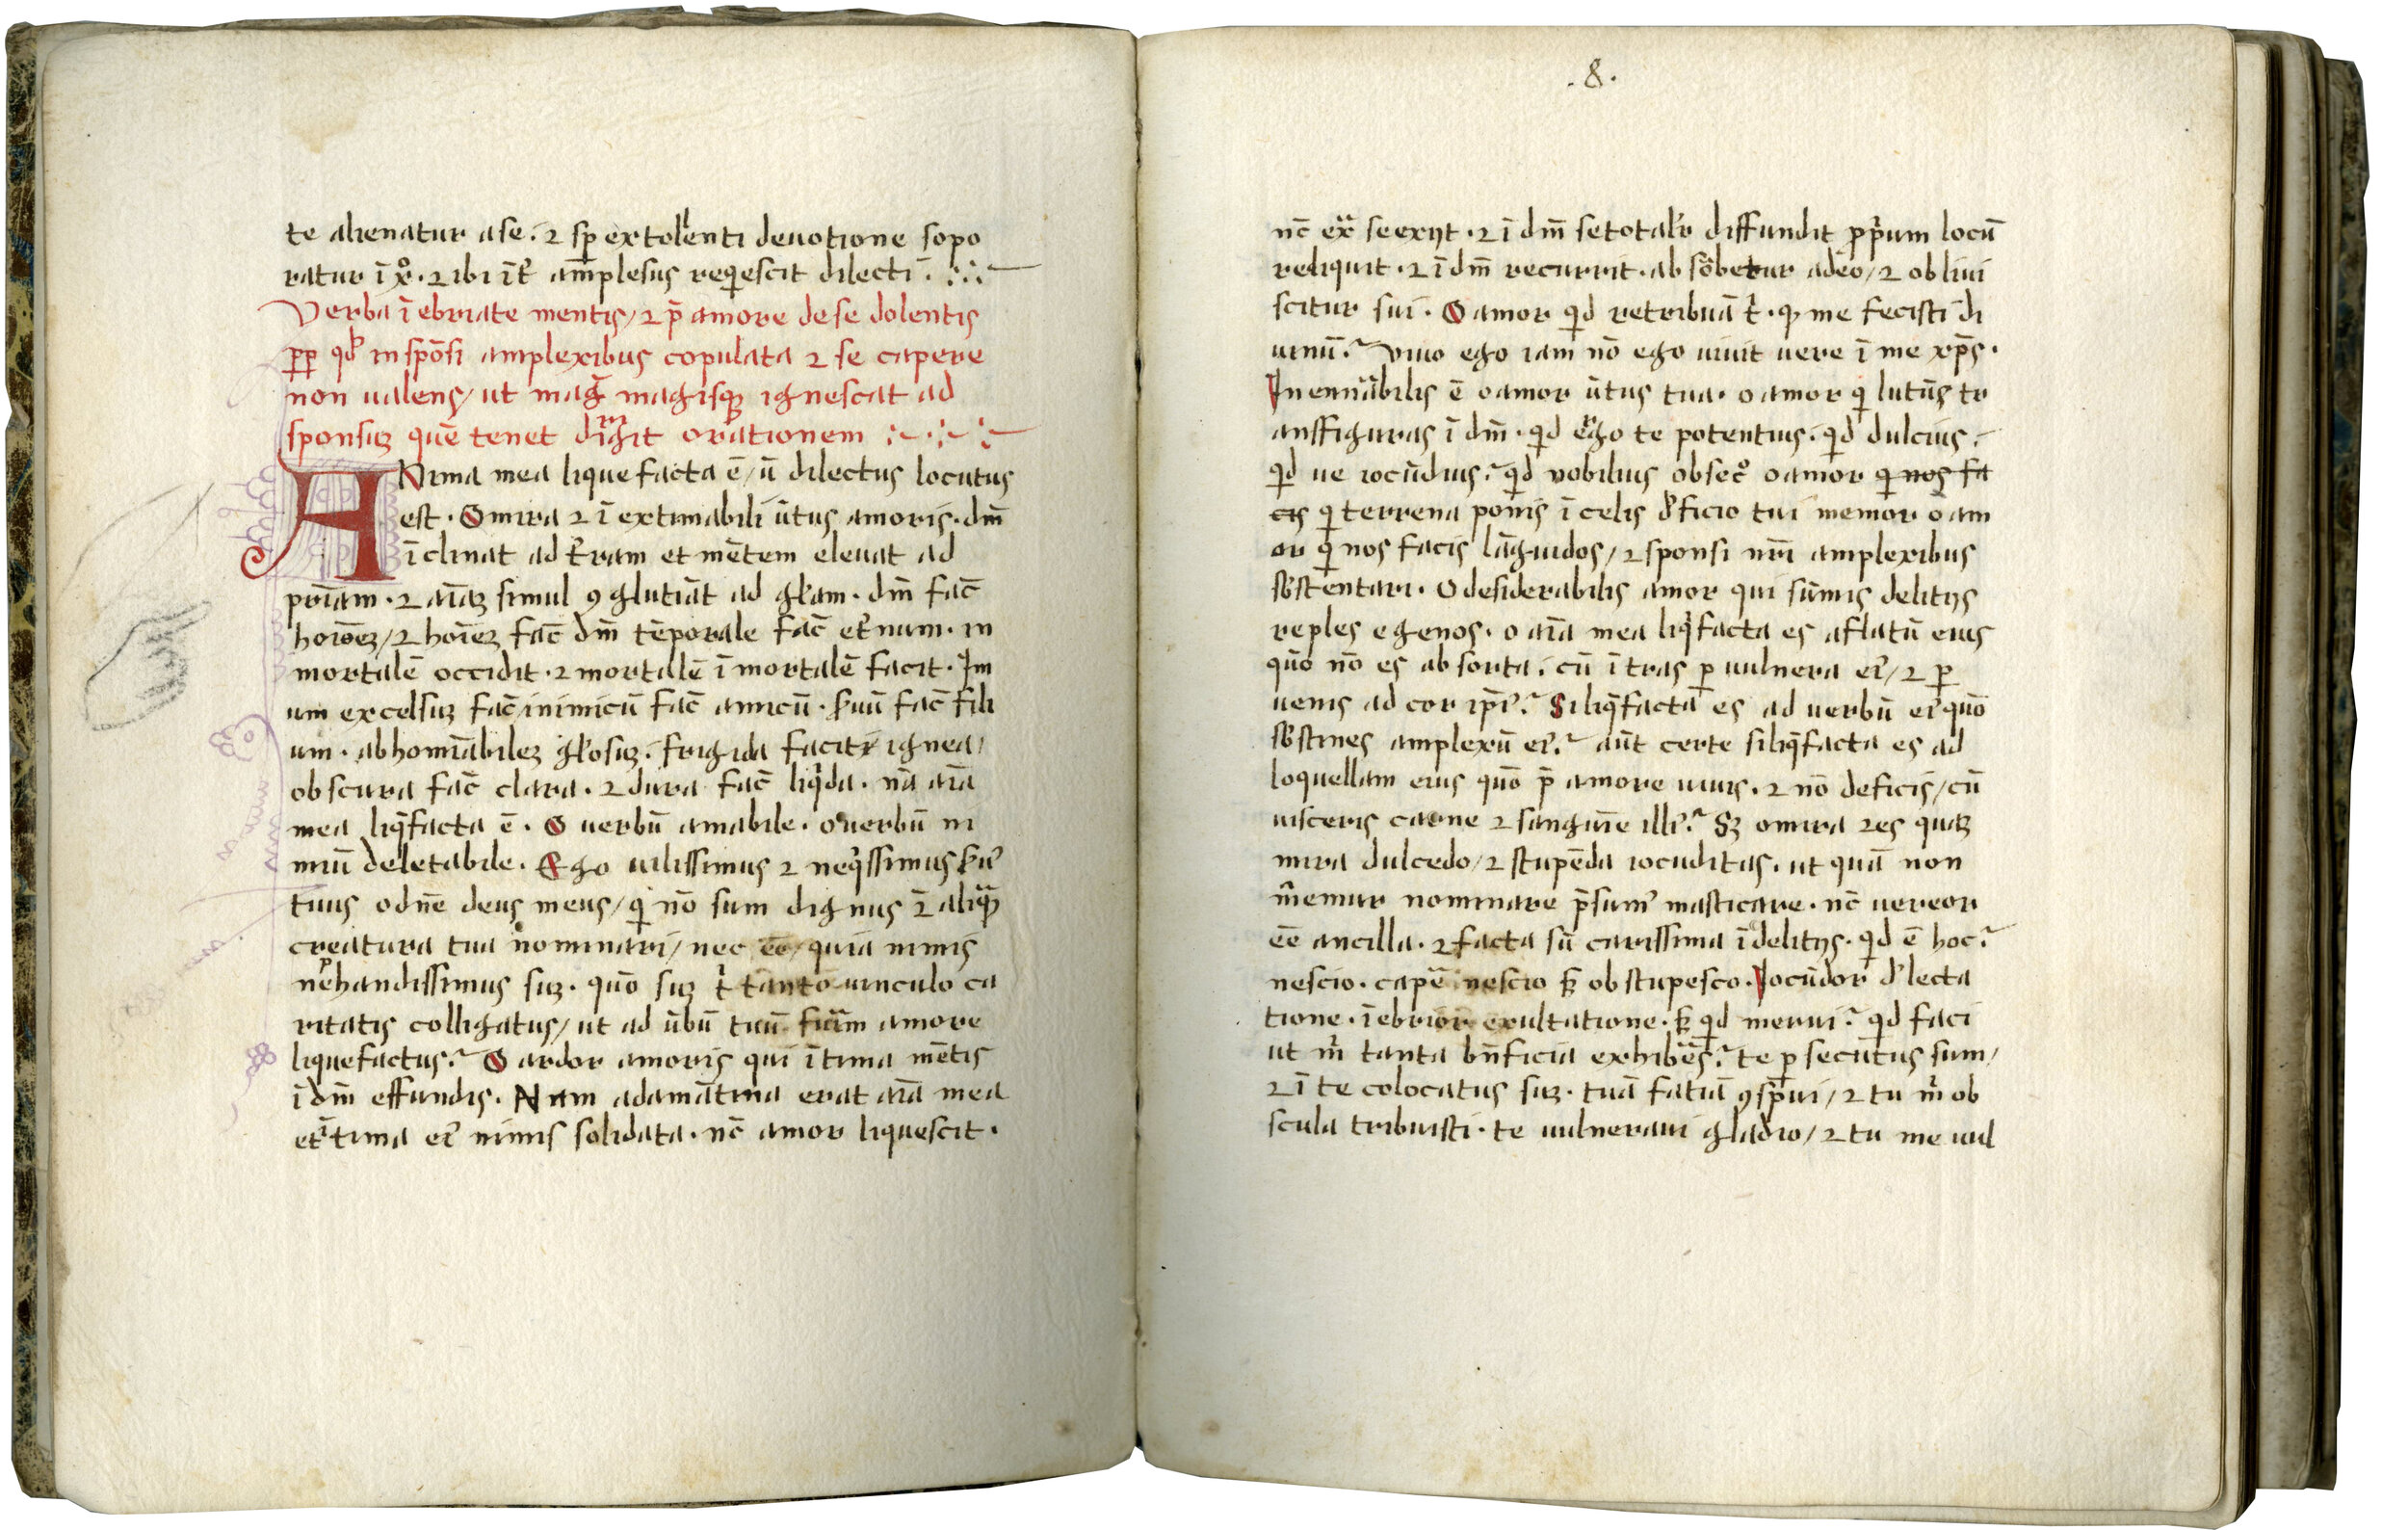 te alienatur a se. ⁊ sp̄ extolenti deuotione sopo
ratur ī xº. ⁊ ibi īt' amplesus reqiescit dilecti.
Verba ī ebriate mentis / ⁊ p̄ amore de se dolentis
pp qd' in spōsi amplexibus copulata ⁊ se capere
non ualens / ut maḡ magisqꝫ ignescat ad
sponsuꝫ quē tenet dirigit orationem
ANima mea liquefacta ē / ū dilectus locutus
est. O mira ⁊ ī extimabili ūtus amoris. dm̄
ī clinat ad t'ram et mētem eleuat ad
pr̄iam. ⁊ aīaꝫ simul ꝯ glutiāt ad gl'am. dm̄ fac̄
hoīeꝫ / ⁊ hoīeꝫ fac̄ dm̄ tēporale fac̄ et'num. in
mortalē occidit. ⁊ mortalē ī mortalē facit. Im
um excelsuꝫ fac̄ / inimicū fac̄ amicū. s'uū fac̄ fili
um. abhomīabileꝫ gl'osuꝫ. frigida facit ignea /
obscura fac̄ clara. ⁊ dura fac̄ liq'da. nā aīa
mea liq̄facta ē. O uerbū amabile. o uerbū ni
miū deletabile. Ego uilissimus ⁊ neq'ssimus s'u'
tuus o dn̄e deus meus / qi nō sum dignus ī aliqua
creatura tua nominari / nec eē / quia nimis
nephandissimus suꝫ. quō suꝫ t' tanto uinculo ca
ritatis colligatus / ut ad ūbū tuū amore
liquefactus? O ardor amoris qui ītima mētis
ī dm̄ effundis. Nam adamātina erat aīa mea
et ītima ei' nimis solidata. nc̄ amor liquescit.
.8.
nc̄ exᵃ se exijt. ⁊ ī dm̄ se total'r diffundit pp'um locū
reliquit. ⁊ ī dm̄ recurrit. ab sorbetur a deo / ⁊ obliui
scitur sui. O amor qid retribuā t'. qꝫ me fecisti di
uinū? Viuo ego iam nō ego uiuit uere ī me xp̄s.
Inenn̄abilis ē o amor ūtus tua. o amor qi lutūs tr
ansffiguras ī dm̄. qid ergo te potentius. qid dulcius.
qid ue iocūdius? qid nobilius obsecº o amor qi nos fa
cis qi terrena ponis ī celis d'ficio tui memor o am
or qi nos facis lāguidos / ⁊ sponsi nr̄i amplexibus
sb'stentari. O desiderabilis amor qui sūmis delitijs
reples egenos. o aīa mea liq'facta es aflatū eius
quō nō es absorta. cū ī tras p uulnera ei' / ⁊ p
uenis ad cor ip̄i'? Si liq̄facta es ad uerbū ei' quō
sb'stines amplexū ei'? aūt certe si liq̄facta es ad
loquellam eius quō p̄ amore uiuis. ⁊ nō deficis / cū
uisceris carne ⁊ sanguīe illi'? Sꝫ o mira res quaꝫ
mira dulcedo / ⁊ stupēda iocuditas. ut quā non
m̄emur nominare p̄sum' masticare. nc̄ uereor
eē ancilla. ⁊ facta sū carissima ī delitijs. qid ē hoc?
nescio. capē nescio sꝫ obstupesco. Iocūdor d'lecta
tione. ī ebrior exultatione. sꝫ qid merui? qid feci
ut m' tanta bn̄ficia exhibēs? te p secutus sum /
⁊ ī te colocatus suꝫ. tuā fatiā ꝯspui / ⁊ tu m' ob
scula tribuisti. te uulneraui gladio / ⁊ tu me uul